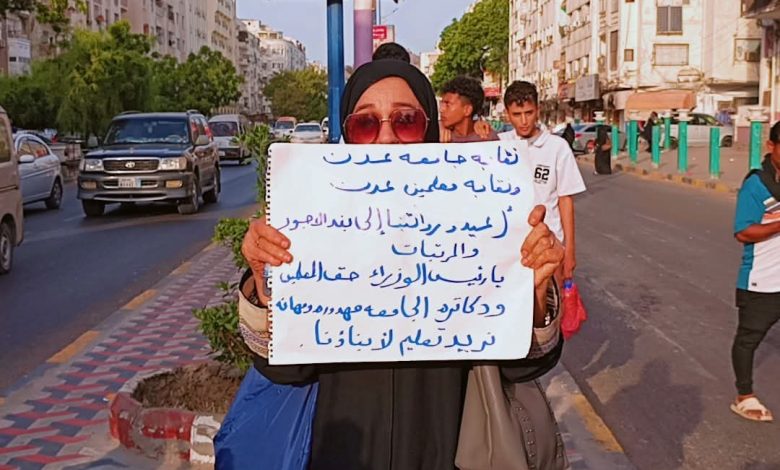 نقابه جامعه عدن
ونقابه معلمين عدن
أعيدو رواتبنا إلى بند الاجور
والمرتبات
يا رئيس الوزراء حق المعلمين
ودكاتره الجامعه مهدوره ومهانه
نريد تعليم لأبناؤنا.
62